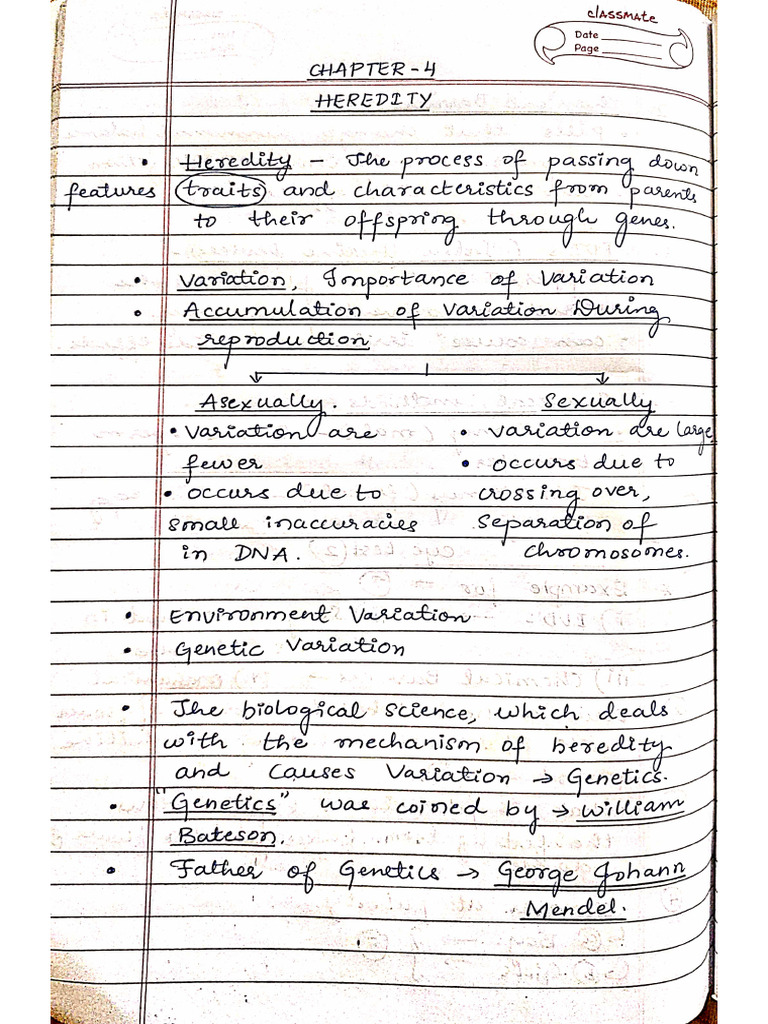 classmate
Date
Page
CHAPTER-4
HEREDITY
• Heredity – The process of passing down
features traits and characteristics from parents
to their offspring through genes.
• Variation, Importance of Variation
• Accumulation of variation During
reproduction
Asexually. Sexually
• variation are • variation are large
fewer • occurs due to
• occurs due to crossing over,
small inaccuracies separation of
in DNA. chromosomes.
• Environment Variation
• Genetic Variation
• The biological science, which deals
with the mechanism of heredity
and causes variation → Genetics.
• "Genetics" was coined by → William
Bateson.
• Father of Genetics → George Johann
Mendel.